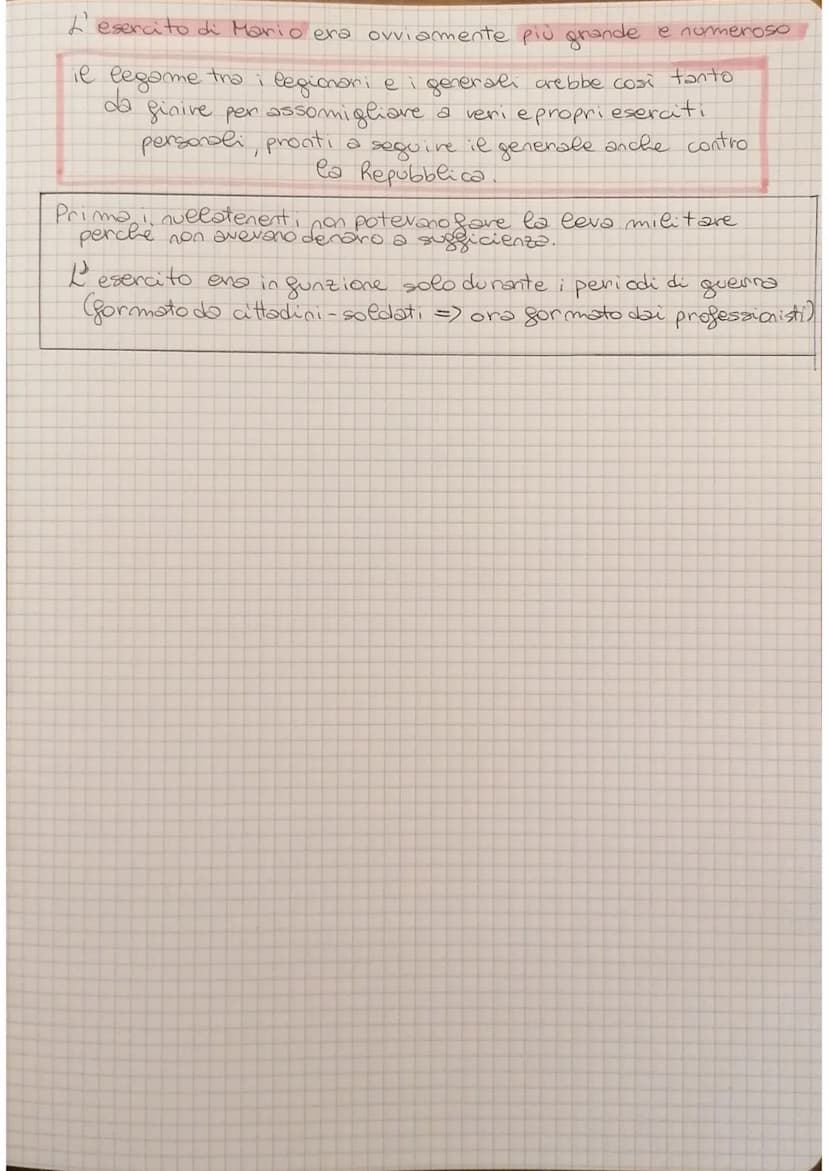 L'esercito di Mario era ovviamente più grande e numeroso
il legame tra i legionari e i generali crebbe così tanto
da finire per assomigliare a veri e propri eserciti
personali, pronti a seguire il generale anche contro
la Repubblica.
Prima i nullatenenti non potevano fare la leva militare
perche non avevano denaro a sufficienza.
L'esercito era in funzione solo durante i periodi di guerra
(formato da cittadini-soldati => ora formato dai professionisti)